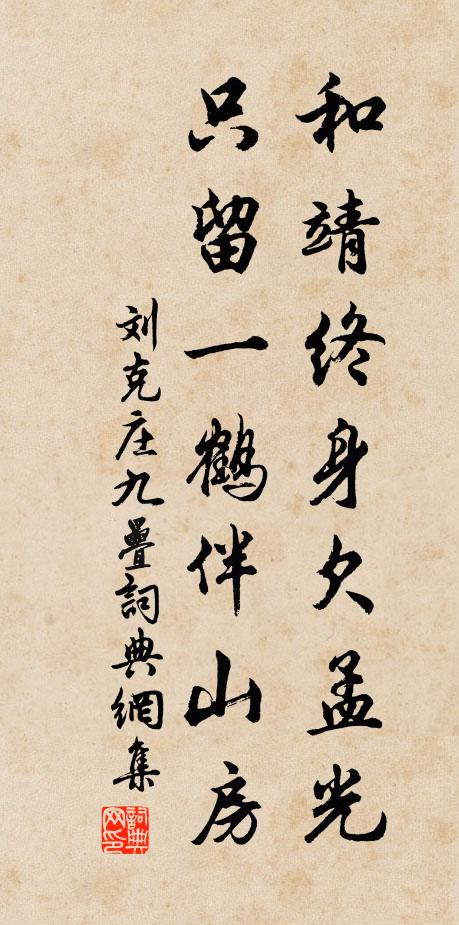 和靖终身欠孟光
只留一鹤伴山房
刘克庄九疊詞典網集
詞典网印